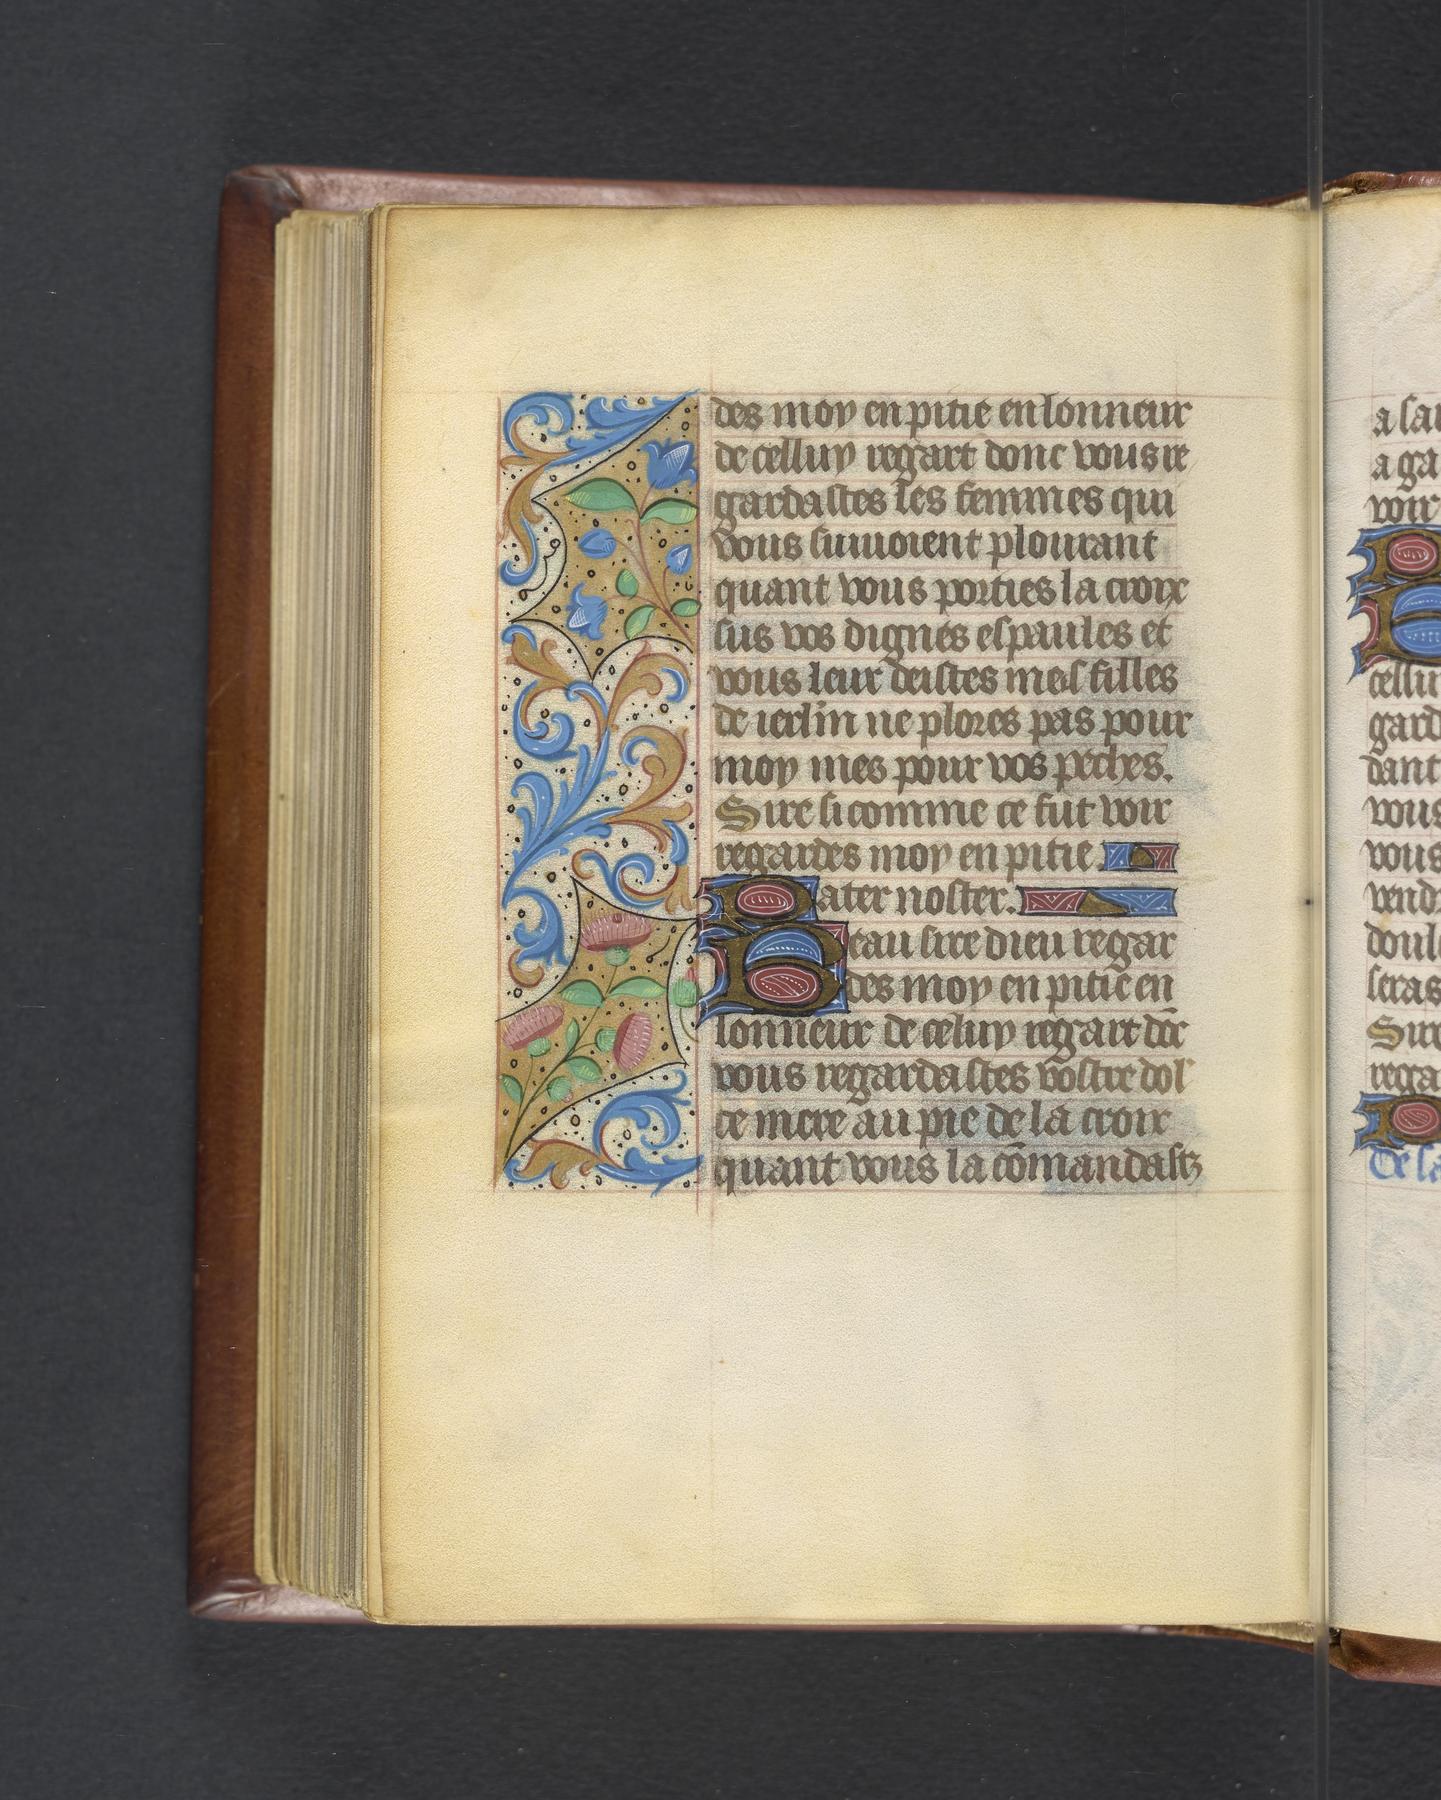 des moy en pitie en lonneur
de celluy regart donc vous re
gardastes les femmes qui
vous suiuoient plourant
quant vous porties la croix
sus vos dignes espaules et
vous leur deistes mes filles
de ierlin ne plores pas pour
moy mes pour vos peches.
Sire si comme ce fut voir
regardes moy en pitie.
Pater noster.
Beau sire dieu regar
des moy en pitie en
lonneur de celuy regart dōc
vous regardastes vostre dol
ce mere au pie de la croix
quant vous la cōmandastz
a sau
a ga
voir
P
B
celluy
gard
dant
vous
vous
vend
doul
seras
Sire
rega
P
De sa